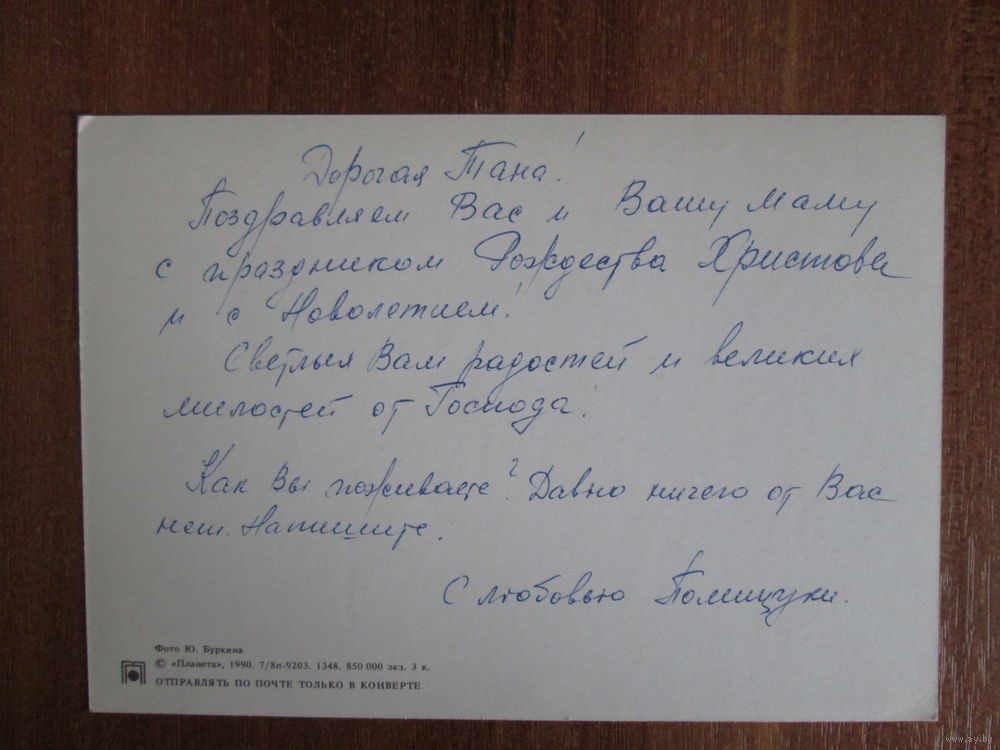 Дорогая Тана!
Поздравляем Вас и Вашу маму
с праздником Рождества Христова
и с Новолетием!
Светлых Вам радостей и великих
милостей от Господа!
Как Вы поживаете? Давно ничего от Вас
нет. Напишите.
С любовью
Фото Ю. Буркина
© «Планета», 1990. 7/8п-9203. 1348. 850 000 экз. 3 к.
ОТПРАВЛЯТЬ ПО ПОЧТЕ ТОЛЬКО В КОНВЕРТЕ
www.ay.by